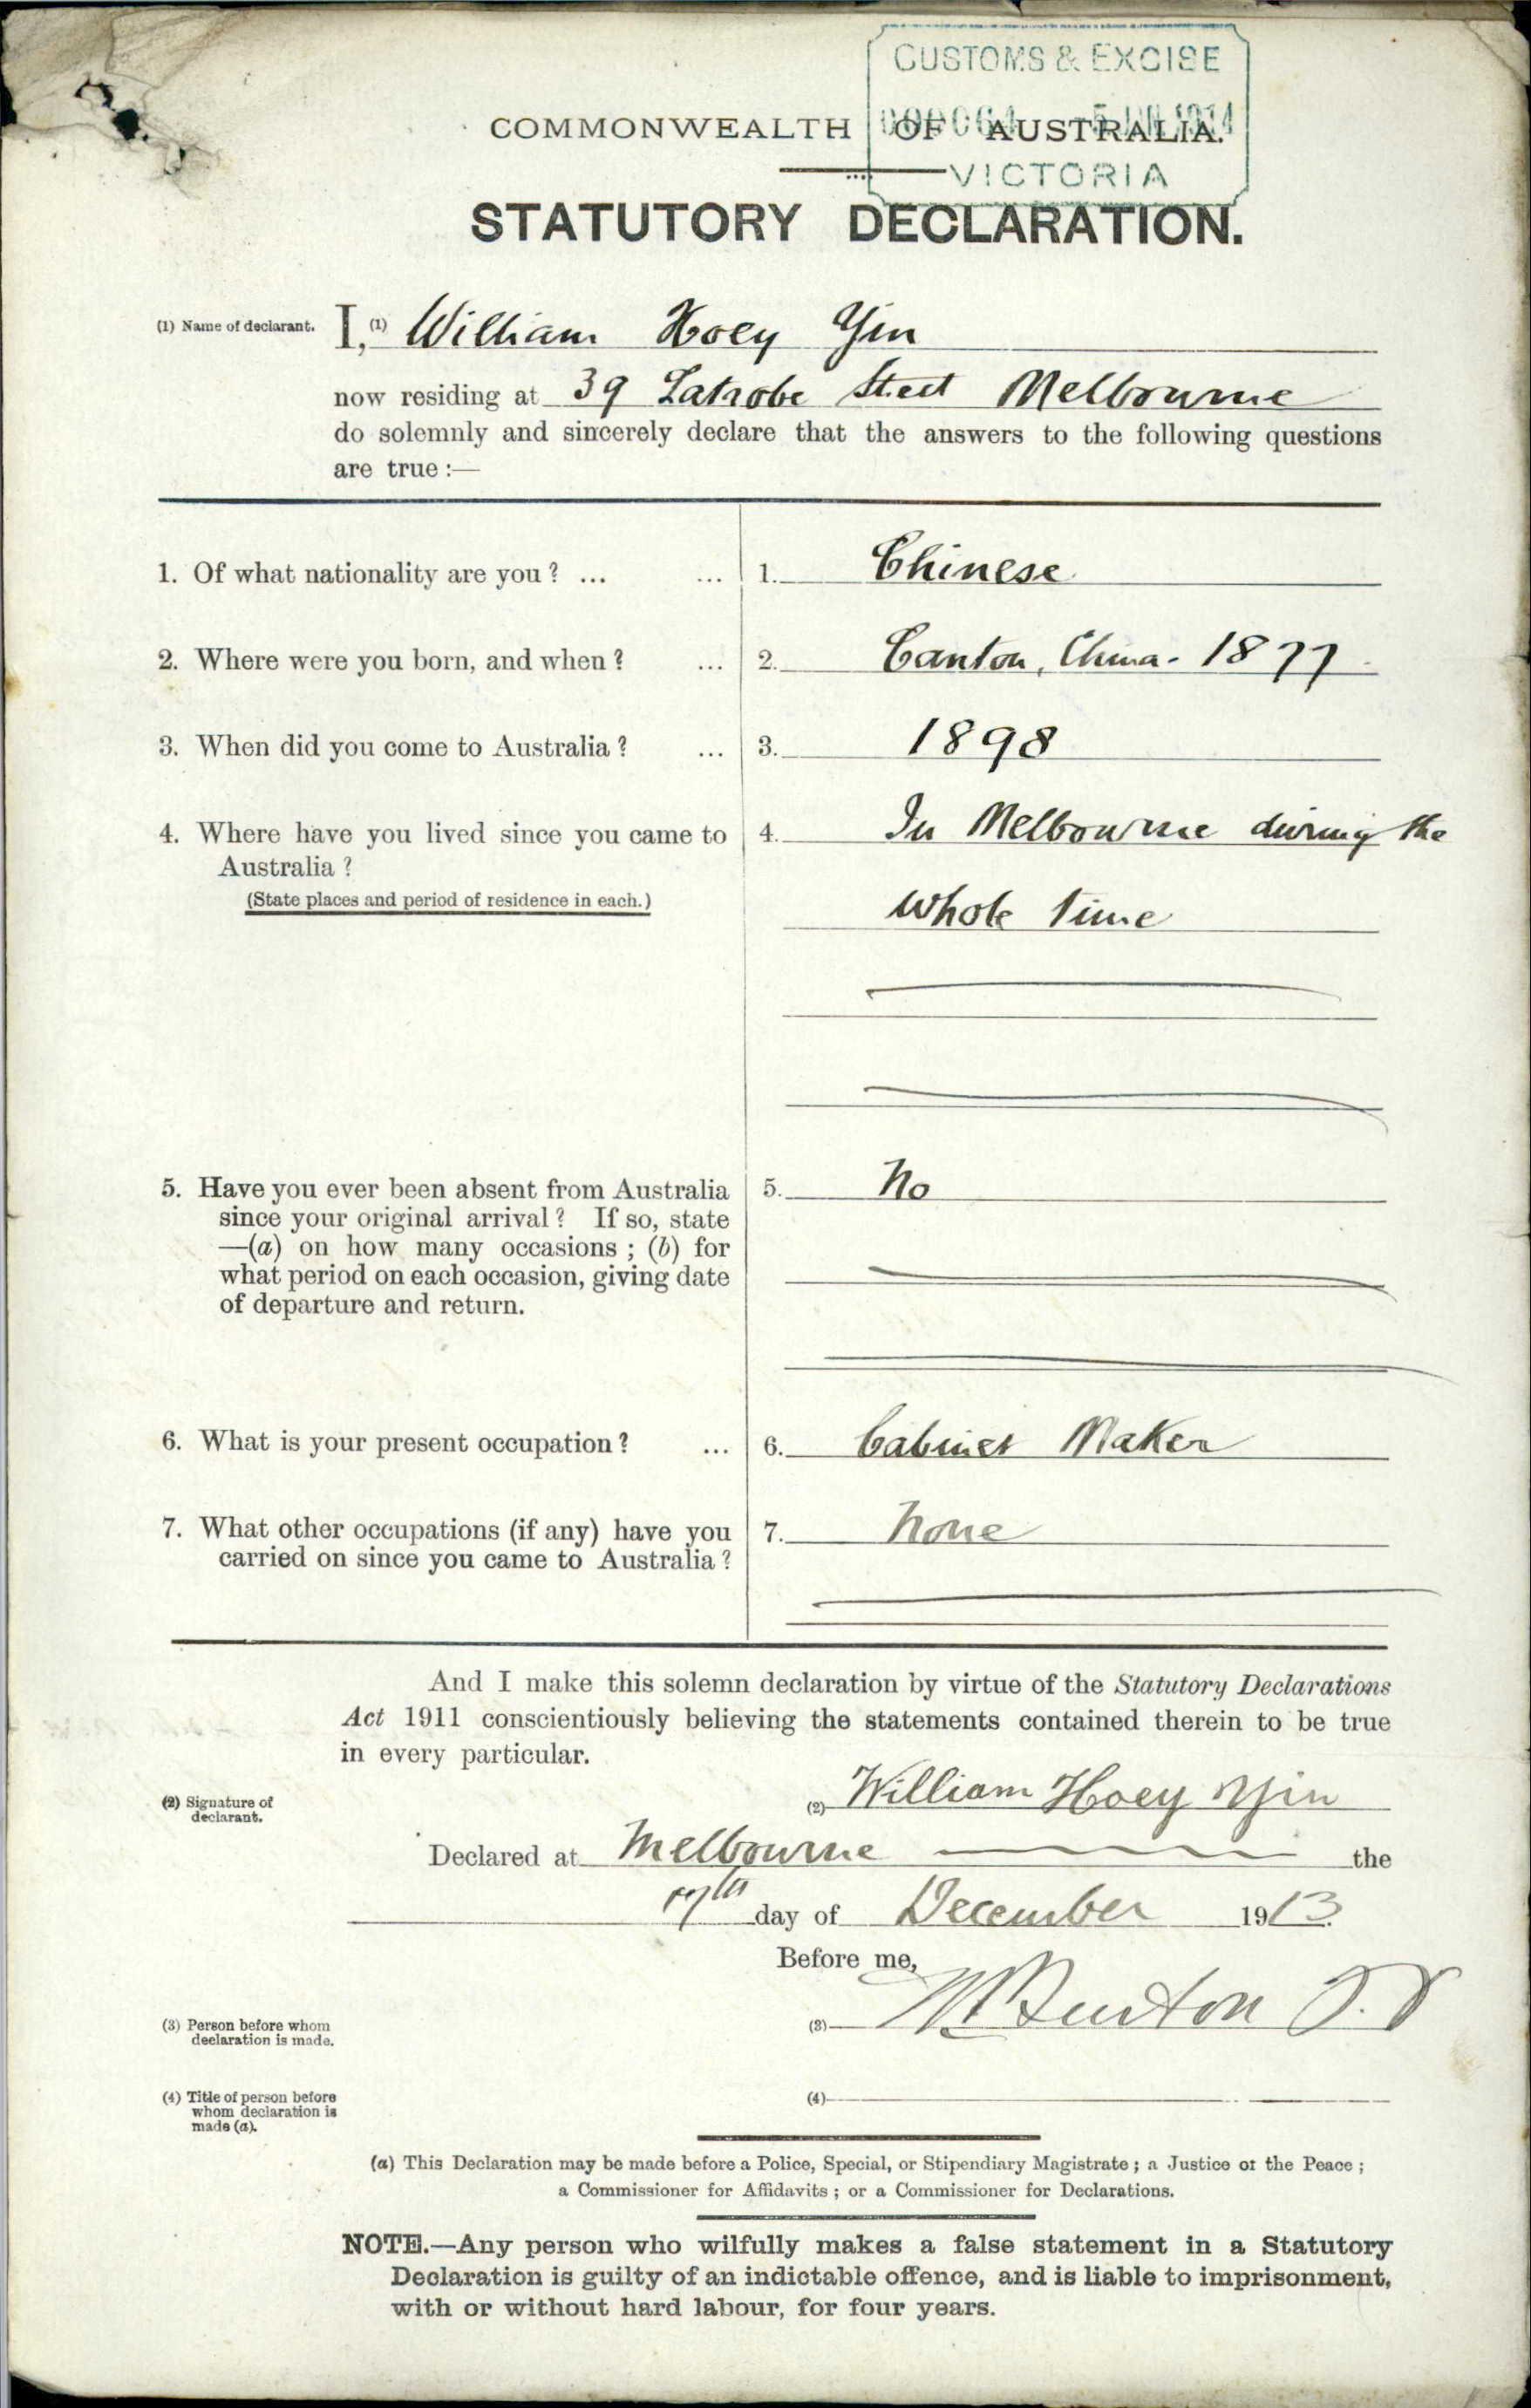 CUSTOMS & EXCISE
COMMONWEALTH OF AUSTRALIA.
VICTORIA
STATUTORY DECLARATION.
(1) Name of declarant. I, (1) William Hoey Yin
now residing at 39 Latrobe Street Melbourne
do solemnly and sincerely declare that the answers to the following questions
are true :—
1. Of what nationality are you ? ... ... 1. Chinese
2. Where were you born, and when ? ... 2. Canton, China - 1877
3. When did you come to Australia ? ... 3. 1898
4. Where have you lived since you came to 4. In Melbourne during the
Australia ?
(State places and period of residence in each.) whole time
5. Have you ever been absent from Australia 5. No
since your original arrival ? If so, state
—(a) on how many occasions ; (b) for
what period on each occasion, giving date
of departure and return.
6. What is your present occupation ? ... 6. Cabinet Maker
7. What other occupations (if any) have you 7. None
carried on since you came to Australia ?
And I make this solemn declaration by virtue of the Statutory Declarations
Act 1911 conscientiously believing the statements contained therein to be true
in every particular.
(2) Signature of (2) William Hoey Yin
declarant.
Declared at Melbourne the
day of December 1913.
Before me,
(3) Person before whom (3) Burton J.P
declaration is made.
(4) Title of person before (4)
whom declaration is
made (a).
(a) This Declaration may be made before a Police, Special, or Stipendiary Magistrate ; a Justice of the Peace ;
a Commissioner for Affidavits ; or a Commissioner for Declarations.
NOTE.—Any person who wilfully makes a false statement in a Statutory
Declaration is guilty of an indictable offence, and is liable to imprisonment,
with or without hard labour, for four years.